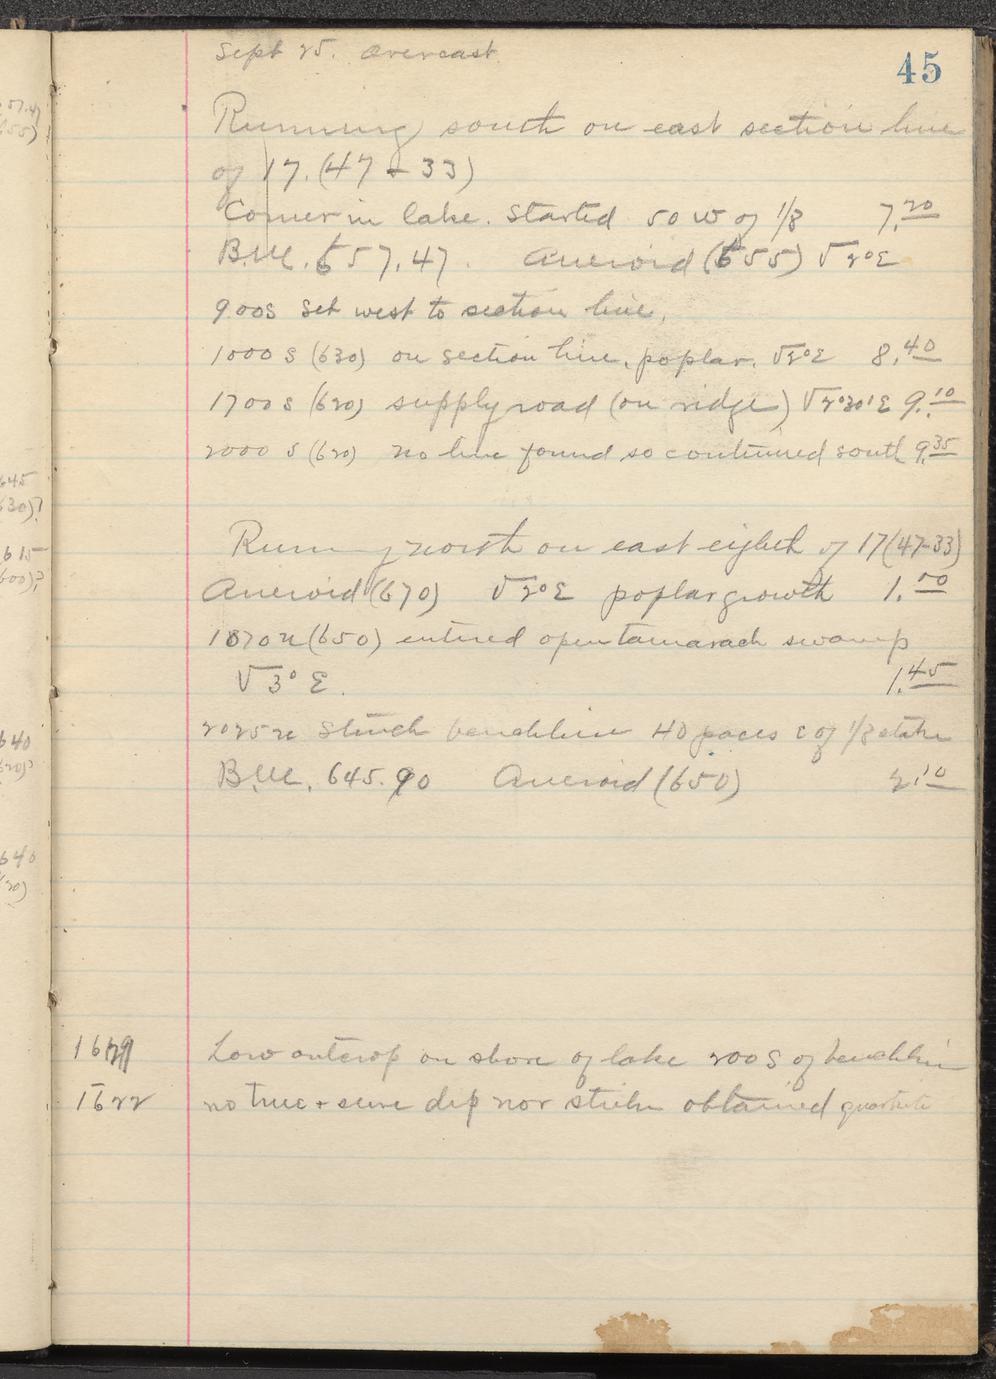 Sept 25. Overcast
45
Running south on east section line
of 17. (47-33)
Corner in lake. Started 50 W of 1/8 7.20
B.M. 657.47. Aneroid (655) √2°E
900S Set west to section line,
1000 S (630) on section line, poplar. √2°E 8.40
1700 S (620) supply road (on ridge) √2°30'E 9.10
2000 S (620) no line found so continued south 9.35
Running north on east eighth of 17(47-33)
Aneroid (670) √2°E poplar growth 1.00
1870 N (650) entered open tamarack swamp
√3°E. 1.45
2025 N Struck benchline 40 paces E of 1/8 stake
B.M. 645.90 Aneroid (650) 2.10
Low outcrop on shore of lake 200 S of benchline
1622 no true + sure dip nor strike obtained quartzite
57.47
655)
645
630)?
615
600)?
640
620)?
640